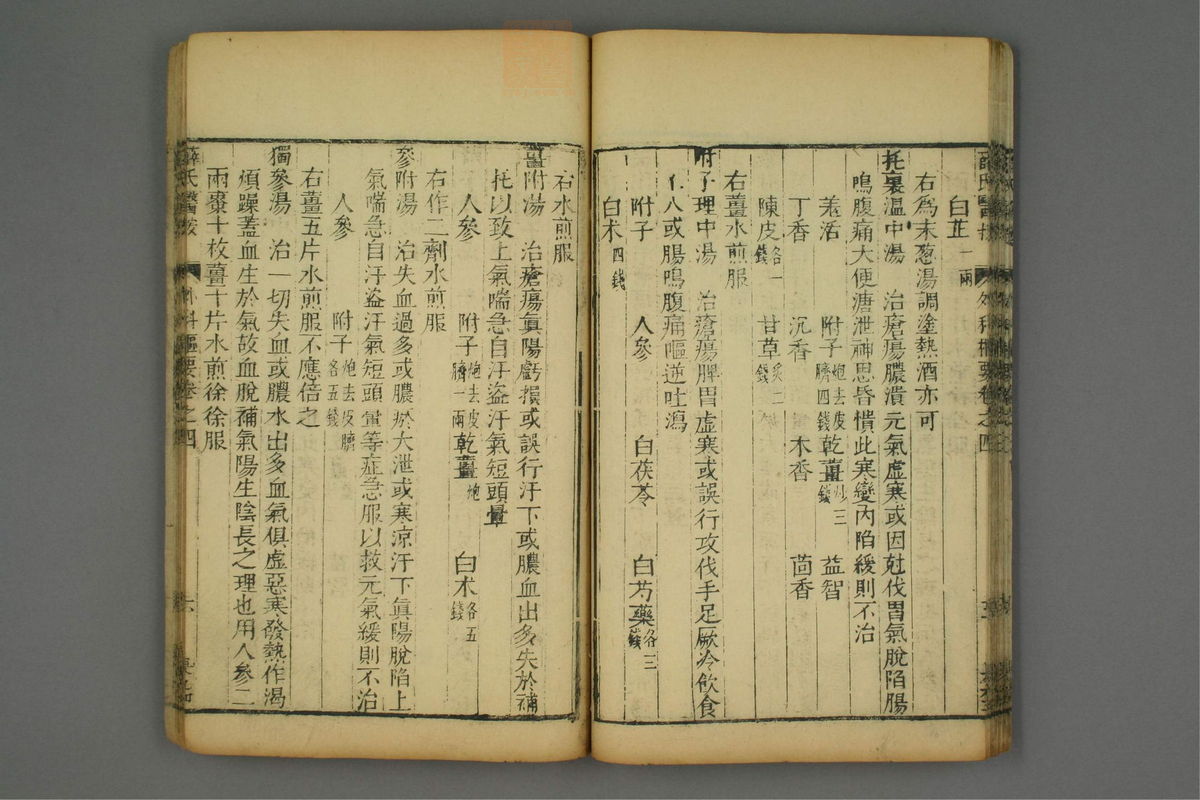 白芷一兩
右爲末葱湯調塗熱酒亦可
托裏溫中湯　治瘡瘍膿潰元氣虛寒或因尅伐胃氣脫陷腸
鳴腹痛大便溏泄神思昏憒此寒變內陷緩則不治
羗活　附子炮去皮臍四錢　乾薑炒三錢　益智
丁香　沉香　木香　茴香
陳皮各一錢　甘草炙二錢
右薑水煎服
附子理中湯　治瘡瘍脾胃虛寒或誤行攻伐手足厥冷飲食
不入或腸鳴腹痛嘔逆吐瀉
附子　人參　白茯苓　白芍藥各三錢
白术四錢
右水煎服
薑附湯　治瘡瘍眞陽虧損或誤行汗下或膿血出多失於補
托以致上氣喘急自汗盜汗氣短頭暈
人參　附子炮去皮臍一兩　乾薑炮　白术各五錢
右作二劑水煎服
參附湯　治失血過多或膿瘀大泄或寒涼汗下眞陽脫陷上
氣喘急自汗盜汗氣短頭暈等症急服以救元氣緩則不治
人參　附子炮去皮臍各五錢
右薑五片水煎服不應倍之
獨參湯　治一切失血或膿水出多血氣俱虛惡寒發熱作渴
煩躁蓋血生於氣故血脫補氣陽生陰長之理也用人參二
兩棗十枚薑十片水煎徐徐服
薛氏醫按　外科樞要卷之四　六